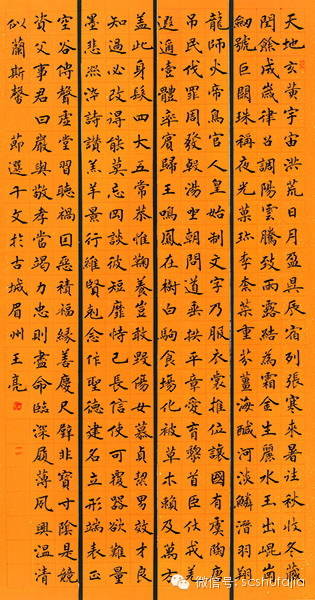 天地玄黃宇宙洪荒日月盈昃辰宿列張寒來暑往秋收冬藏
閏餘成歲律呂調陽雲騰致雨露結為霜金生麗水玉出崑岡
劍號巨闕珠稱夜光菓珍李柰菜重芥薑海鹹河淡鱗潛羽翔
龍師火帝鳥官人皇始制文字乃服衣裳推位讓國有虞陶唐
吊民伐罪周發殷湯坐朝問道垂拱平章愛育黎首臣伏戎羌
遐邇壹體率賓歸王鳴鳳在樹白駒食場化被草木賴及萬方
蓋此身髮四大五常恭惟鞠養豈敢毀傷女慕貞絜男效才良
知過必改得能莫忘罔談彼短靡恃己長信使可覆器欲難量
墨悲絲染詩讚羔羊景行維賢剋念作聖德建名立形端表正
空谷傳聲虛堂習聽禍因惡積福緣善慶尺璧非寶寸陰是競
資父事君曰嚴與敬孝當竭力忠則盡命臨深履薄夙興溫清
似蘭斯馨 節選千文於古城眉州王亮
微信号: scshufajia